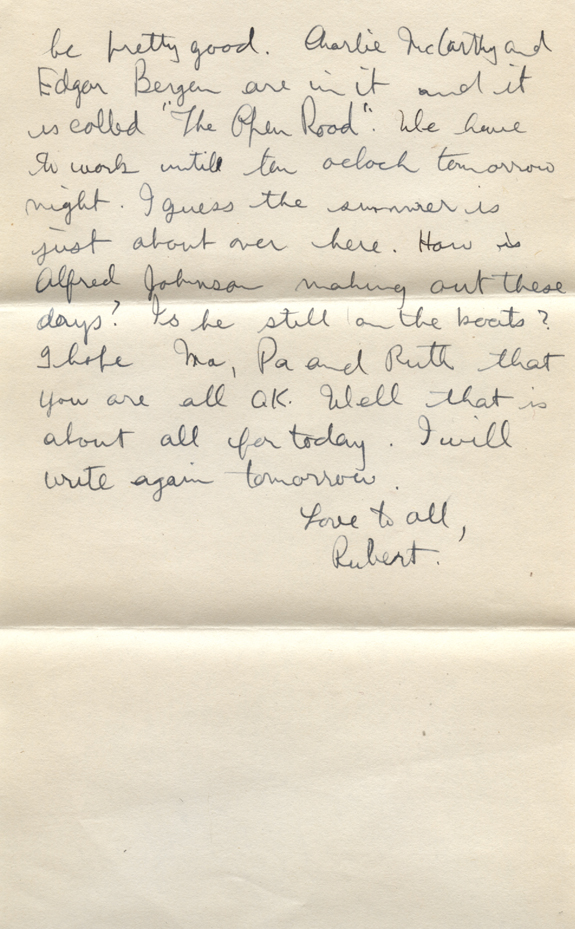 be pretty good. Charlie McCarthy and
Edgar Bergen are in it and it
is called "The Open Road". We have
to work untill ten ocloch tomorrow
night. I guess the summer is
just about over here. How is
Alfred Johnson making out these
days? Is he still on the boats?
I hope Ma, Pa and Ruth that
you are all OK. Well that is
about all for today. I will
write again tomorrow.
Love to all,
Rubert.